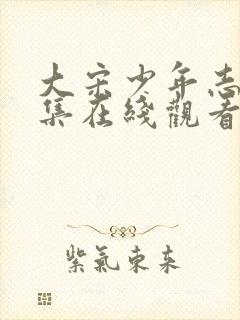 大宋少年志
集在綫觀看
紫氣東来